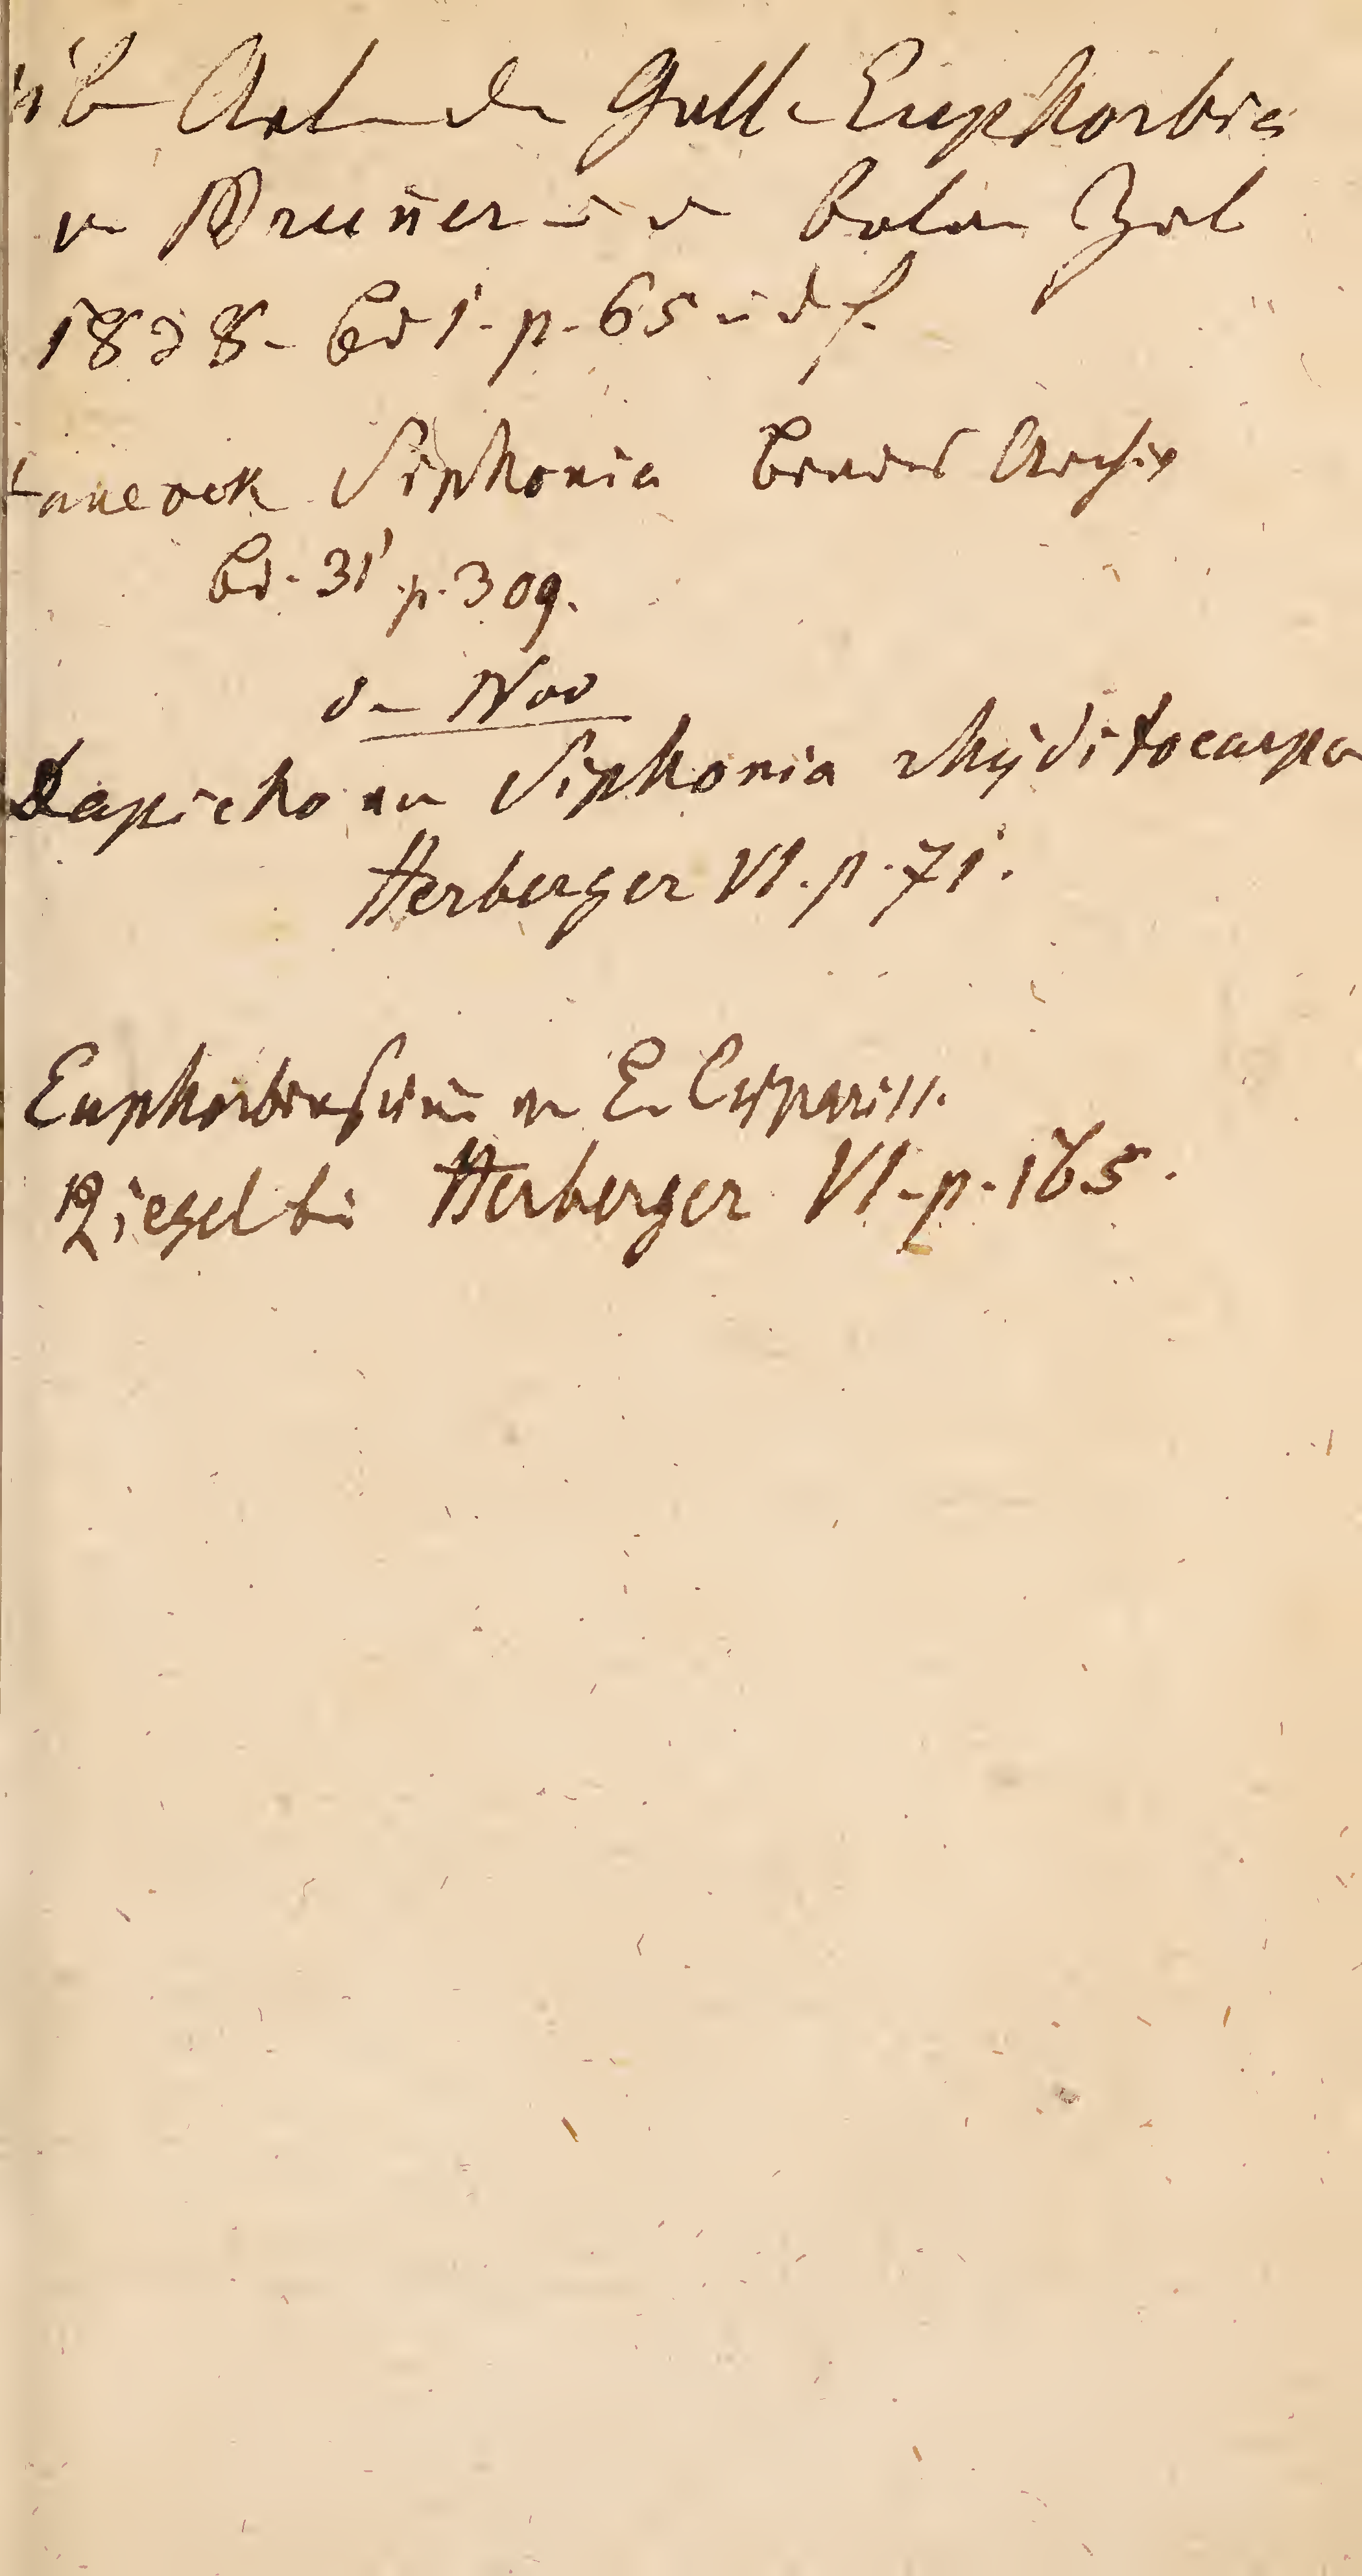 üb Art d Gatt Euphorbia
v Bruner in d botan Zeit
1828 - Bd 1 - p - 65 u d f.
Hancock Siphonia Brandes Archiv
Bd - 31 p. 309.
Nov
Dapicho Siphonia rhytidocarpa
Herberger VI. p. 71.
Euphorbiensäure E. Cypariss.
Riegel bei Herberger VI - p - 165.